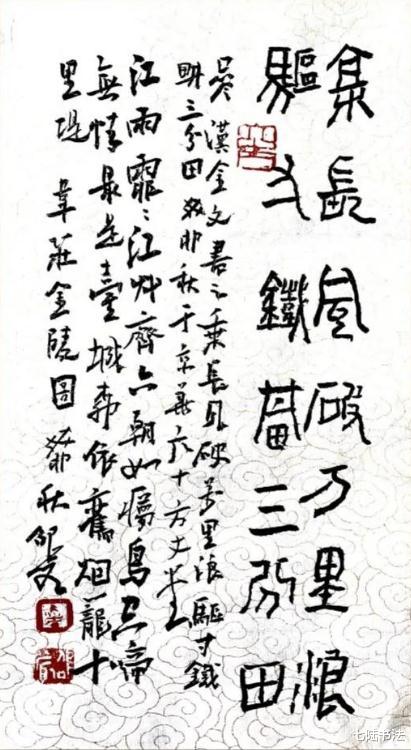 乘長風破万里浪
驅寸鐵畊三分田
漢金文書之乘長風破萬里浪驅寸鐵
畊三分田 癸卯秋于京華六十方丈
江雨霏霏江艸齊六朝如夢鳥空啼
無情最是臺城柳依舊烟籠十
里堤 韋莊金陵圖 癸卯秋 邵
七陆书法